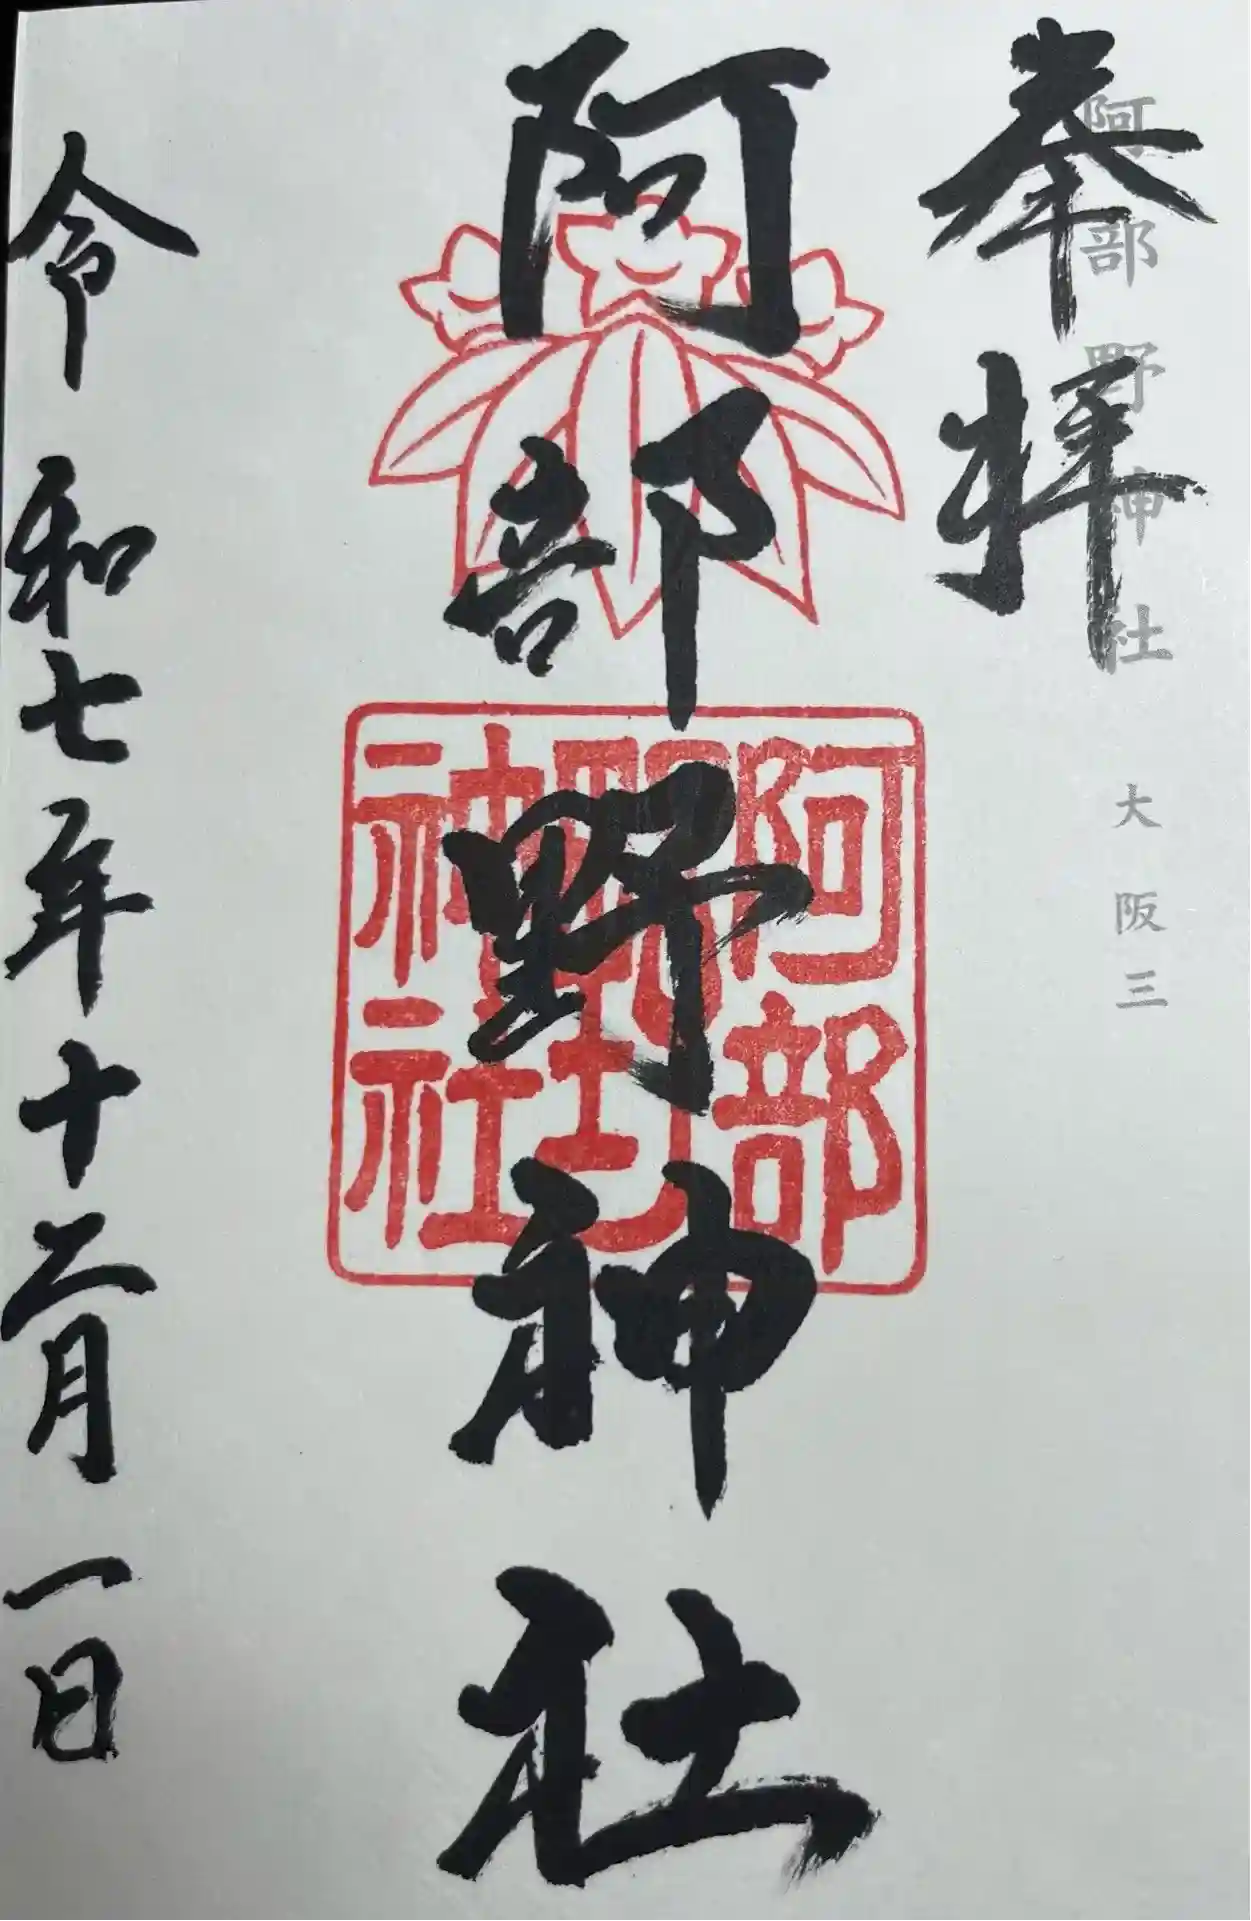 奉拝
阿部野神社 大阪三
阿部野神社
阿部
野
神社
令和七年十二月一日